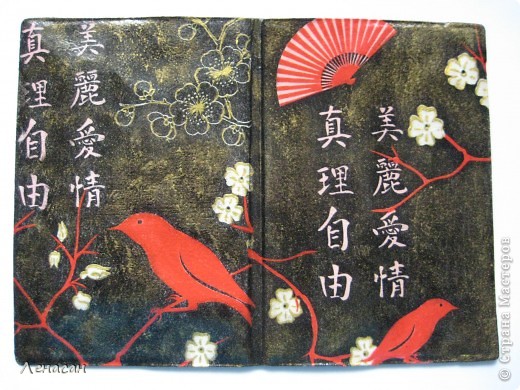 美麗愛情
真理自由
美麗愛情
真理自由
Ленасан
© Страна Мастеров